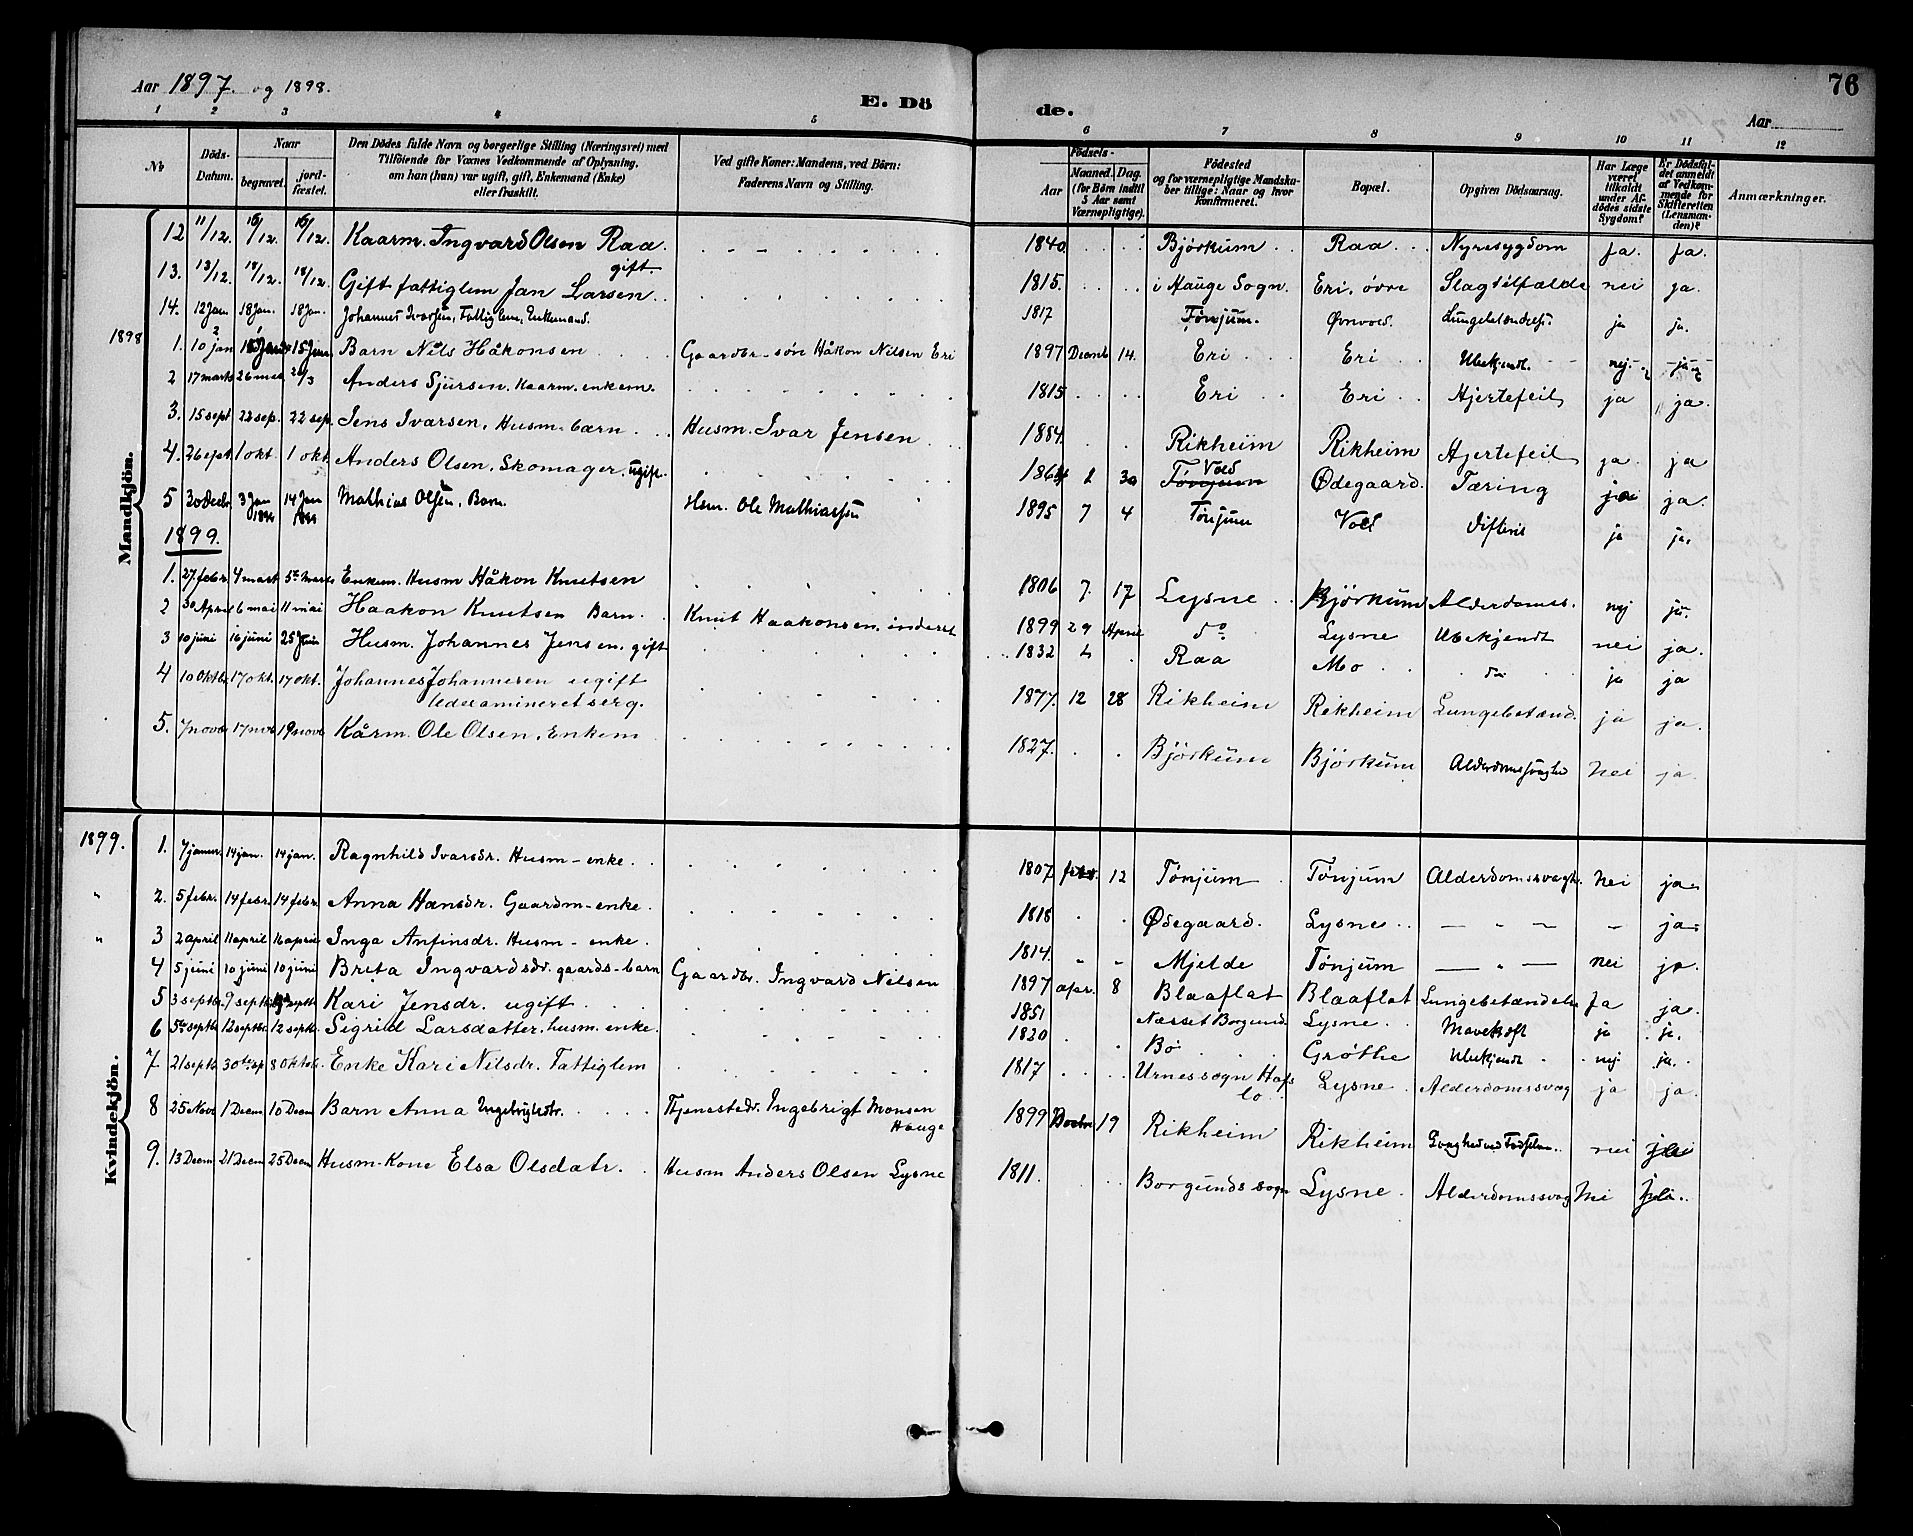 Aar 1897. og 1898.
E. Dö de.
Aar
76
1 2 3 4 5 6 7 8 9 10 11 12
No | Döds-Datum. | Naar begravet. | jord-fæstet. | Den Dödes fulde Navn og borgerlige Stilling (Næringsvei) med Tilföiende for Voxnes Vedkommende af Oplysning, om han (hun) var ugift, gift, Enkemand (Enke) eller fraskilt. | Ved gifte Koner: Mandens, ved Börn: Faderens Navn og Stilling. | Födsels- Aar | Maaned. Dag. (for Börn indtil 5 Aar samt Værnepligtige). | Födested og for værnepligtige Mandskaber tillige: Naar og hvor konfirmeret. | Bopæl. | Opgiven Dödsaarsag. | Har Læge været tilkaldt under Afdödes sidste Sygdom? | Er Dödsfaldet anmeldt af Vedkommende for Skifteretten (Lensmanden)? | Anmærkninger.
Mandkjön.
12 11/12. 16/12. 16/12. Kaarm. Ingvard Olsen Raa. gift. 1840 Bjørkum Raa Nyresygdom Ja. Ja.
13. 13/12. 18/12. 18/12. Gift fattiglem Jan Larsen 1815. i Hauge Sogn. Eri, øvre Slagtilfælde nei ja.
14. 12 Jan 18 Jan. 18 Jan. Johannes Ivarsen, Fattiglem, Enkemand. 1817 Tønjum. Øvrevold. Lungebetændelse. ja ja.
1898 1. 10 jan 15 Jan 15 Jan Barn Nils Håkonsen Gaardbr.-søn Håkon Nilsen Eri 1897 Decemb 14. Eri Eri Ubekjendt. nej ja
2 17 marts 26 mars 26/3 Anders Sjursen. Kaarm. enkem. 1815 Eri Eri Hjertefeil ja ja.
3. 15 sept 22 sep. 22 sep. Jens Ivarsen, Husm. barn Husm. Ivar Jensen 1884. Rikheim Rikheim Hjertefeil ja. ja
4. 26 sept 1 okt. 1 okt Anders Olsen, Skomager. ugift. 1864 1 30 Vold Ødegaard. Tæring ja.
5 30 Decbr 3 Jan 1899 14 Jan 1899 Mathias Olsen, Barn. Husm. Ole Mathiassen 1895 7 4 Tønjum Vold Difteri ja ja.
1899.
1. 27 febr. 4 mart 5te Marts Enkem. Husm Håkon Knutsen 1806 7. 17 Lysne Bjørkum Alderdomss. nej ja.
2 30 April 6 mai 11 mai Haakon Knutsen Barn Knut Haakonsen, inderst 1899 29 April do Lysne Ubekjendt nei ja.
3 10 juni 16 juni 25 Juni Husm. Johannes Jensen, gift 1832 4 Raa Mo do ja ja
4 10 Oktbr 17 okt. 17 okt. Johannes Johannesen ugift
Uexamineret serg. 1877. 12 28 Rikheim Rikheim Lungebetænd. ja ja.
5. 7 novb 17 nov 19 novb Kårm. Ole Olsen, Enkem 1827. Bjørkum Bjørkum Alderdomssvaghed Nei ja.
Kvindekjön.
1899. 1. 7 januar 14 jan. 14 jan. Ragnhild Ivarsdr. Husm-enke. 1807 febr. 12 Tønjum Tønjum Alderdomssvagh. Nei ja
" 2. 5 febr. 14 febr. 14 febr. Anna Hansdr. Gaardm-enke. 1818 Ødegaard. Lysne ja
" 3 2 april 11 april 16 april Inga Anfinsdr. Husm-enke. 1814. Mjelde Tønjum nei ja.
4 5 juni 10 juni 10 juni Brita Ingvardsdr. gaards-barn Gaardbr. Ingvard Nilsen 1897 apr. 8 Blaaflat Blaaflat Lungebetændelse Ja ja.
5 3 septb 9 septb septb Kari Jensdr. ugift 1851 Næsset Borgund Lysne Mavekræft ja ja.
6 5te septbr 12 septbr 12 septb. Sigrid Larsdatter. husm. enke. 1820 Bø Grøthe Ubekjendt nej ja.
7 21 septb 30te sep 8 Oktob. Enke Kari Nilsdr. Fattiglem 1817 Urnes sogn Hafslo Lysne Alderdomssvag ja ja.
8 25 Novb 1 Decm 10 Decm Barn Anna Ingebrigtsdr. Tjenestedr. Ingebrigt Monsen Hauge 1899 19 Rikheim Rikheim Svaghed ved Fødselen. nei
9. 13 Decm 21 Decm 25 Decm Husm-Kone Elsa Olsdatr. Husm Anders Olsen Lysne 1811. Borgunds sogn Lysne Alderdomssvag Nei